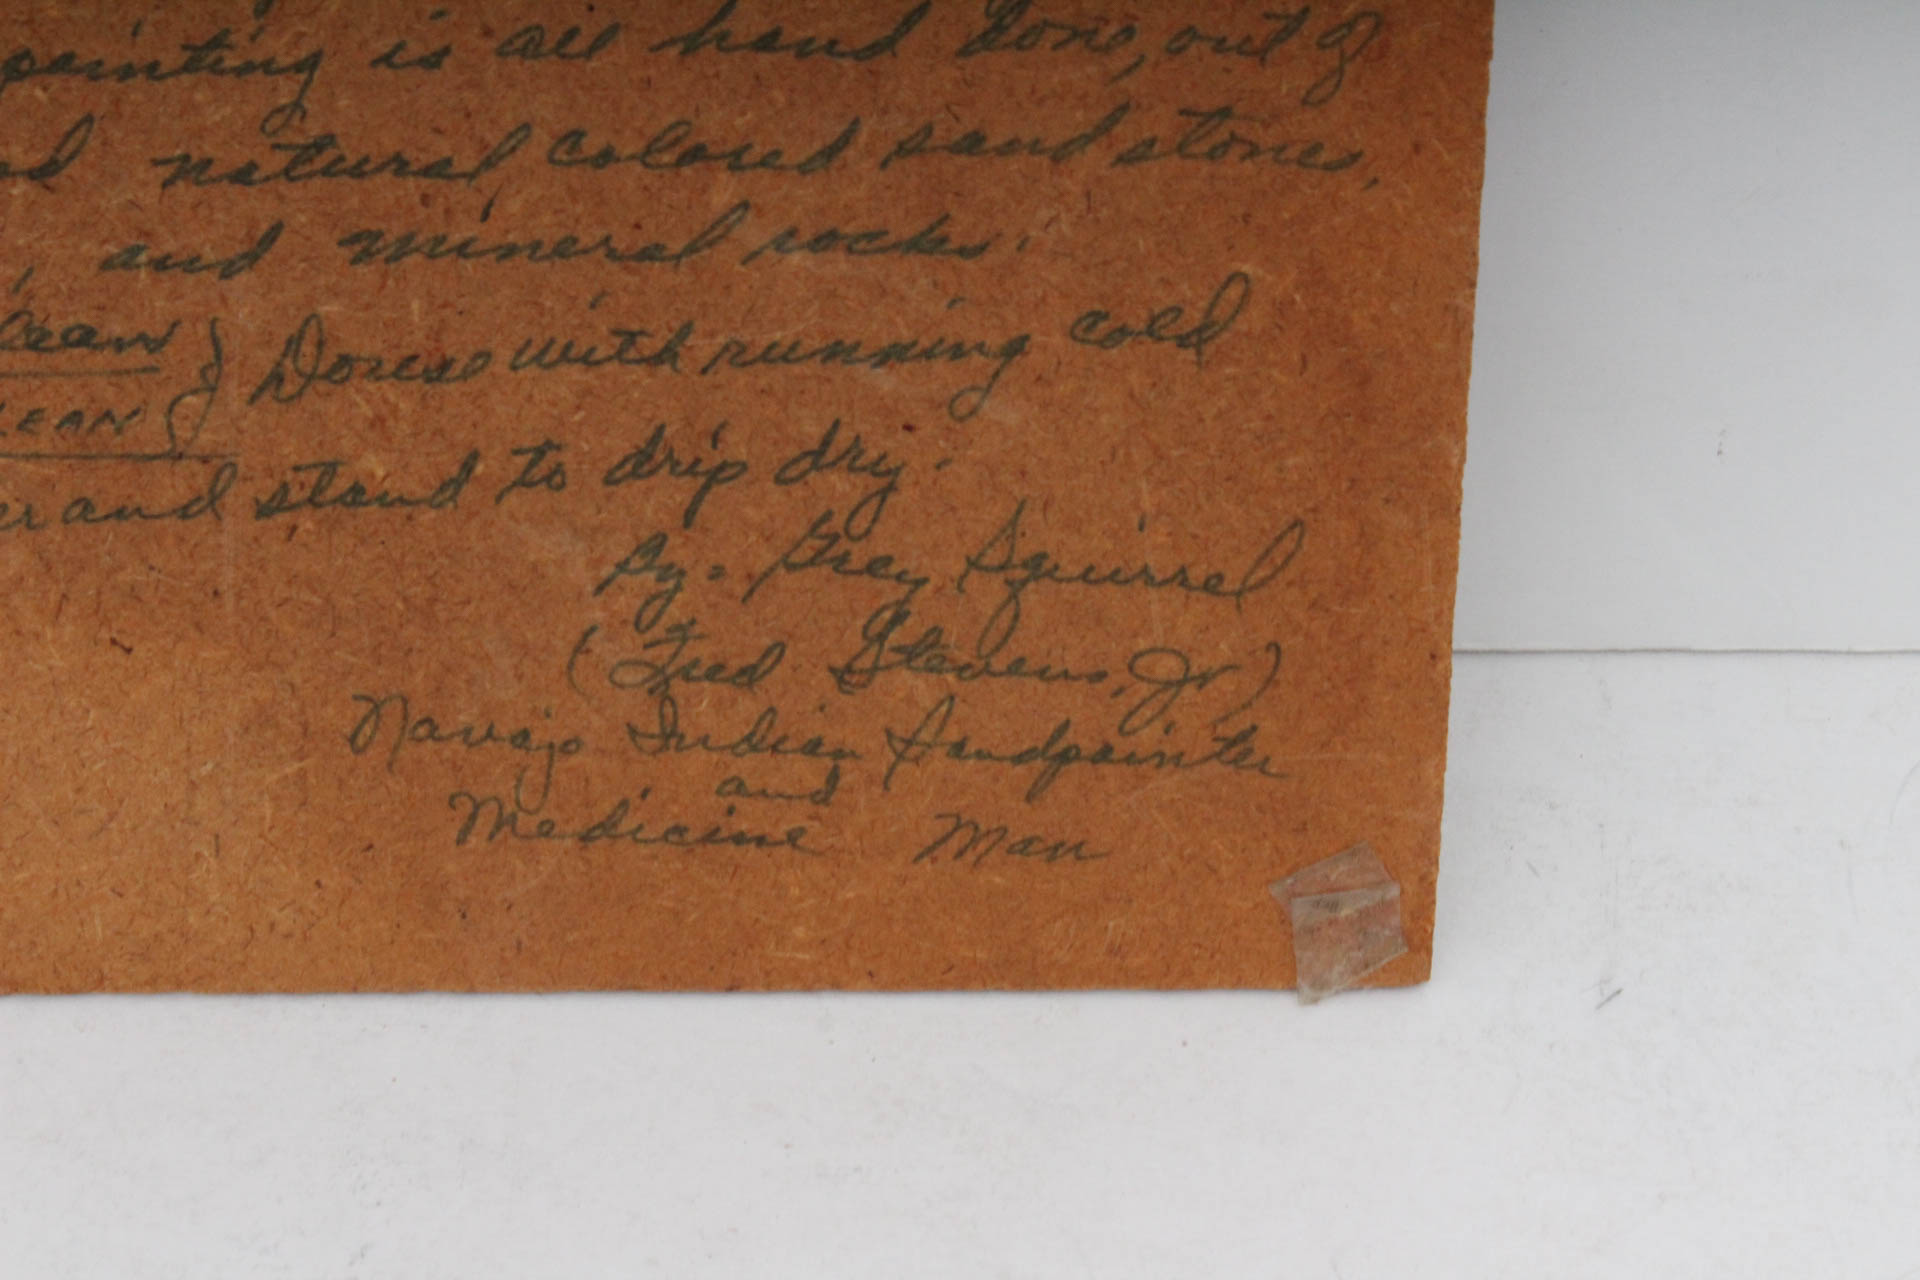 painting is all hand done, out of
natural colored sand stones,
, and mineral rocks.
lean } Douse with running cold
LEAN }
er and stand to drip dry.
By - Grey Squirrel
(Fred Stevens, Jr)
Navajo Indian Sandpainter
and
Medicine Man